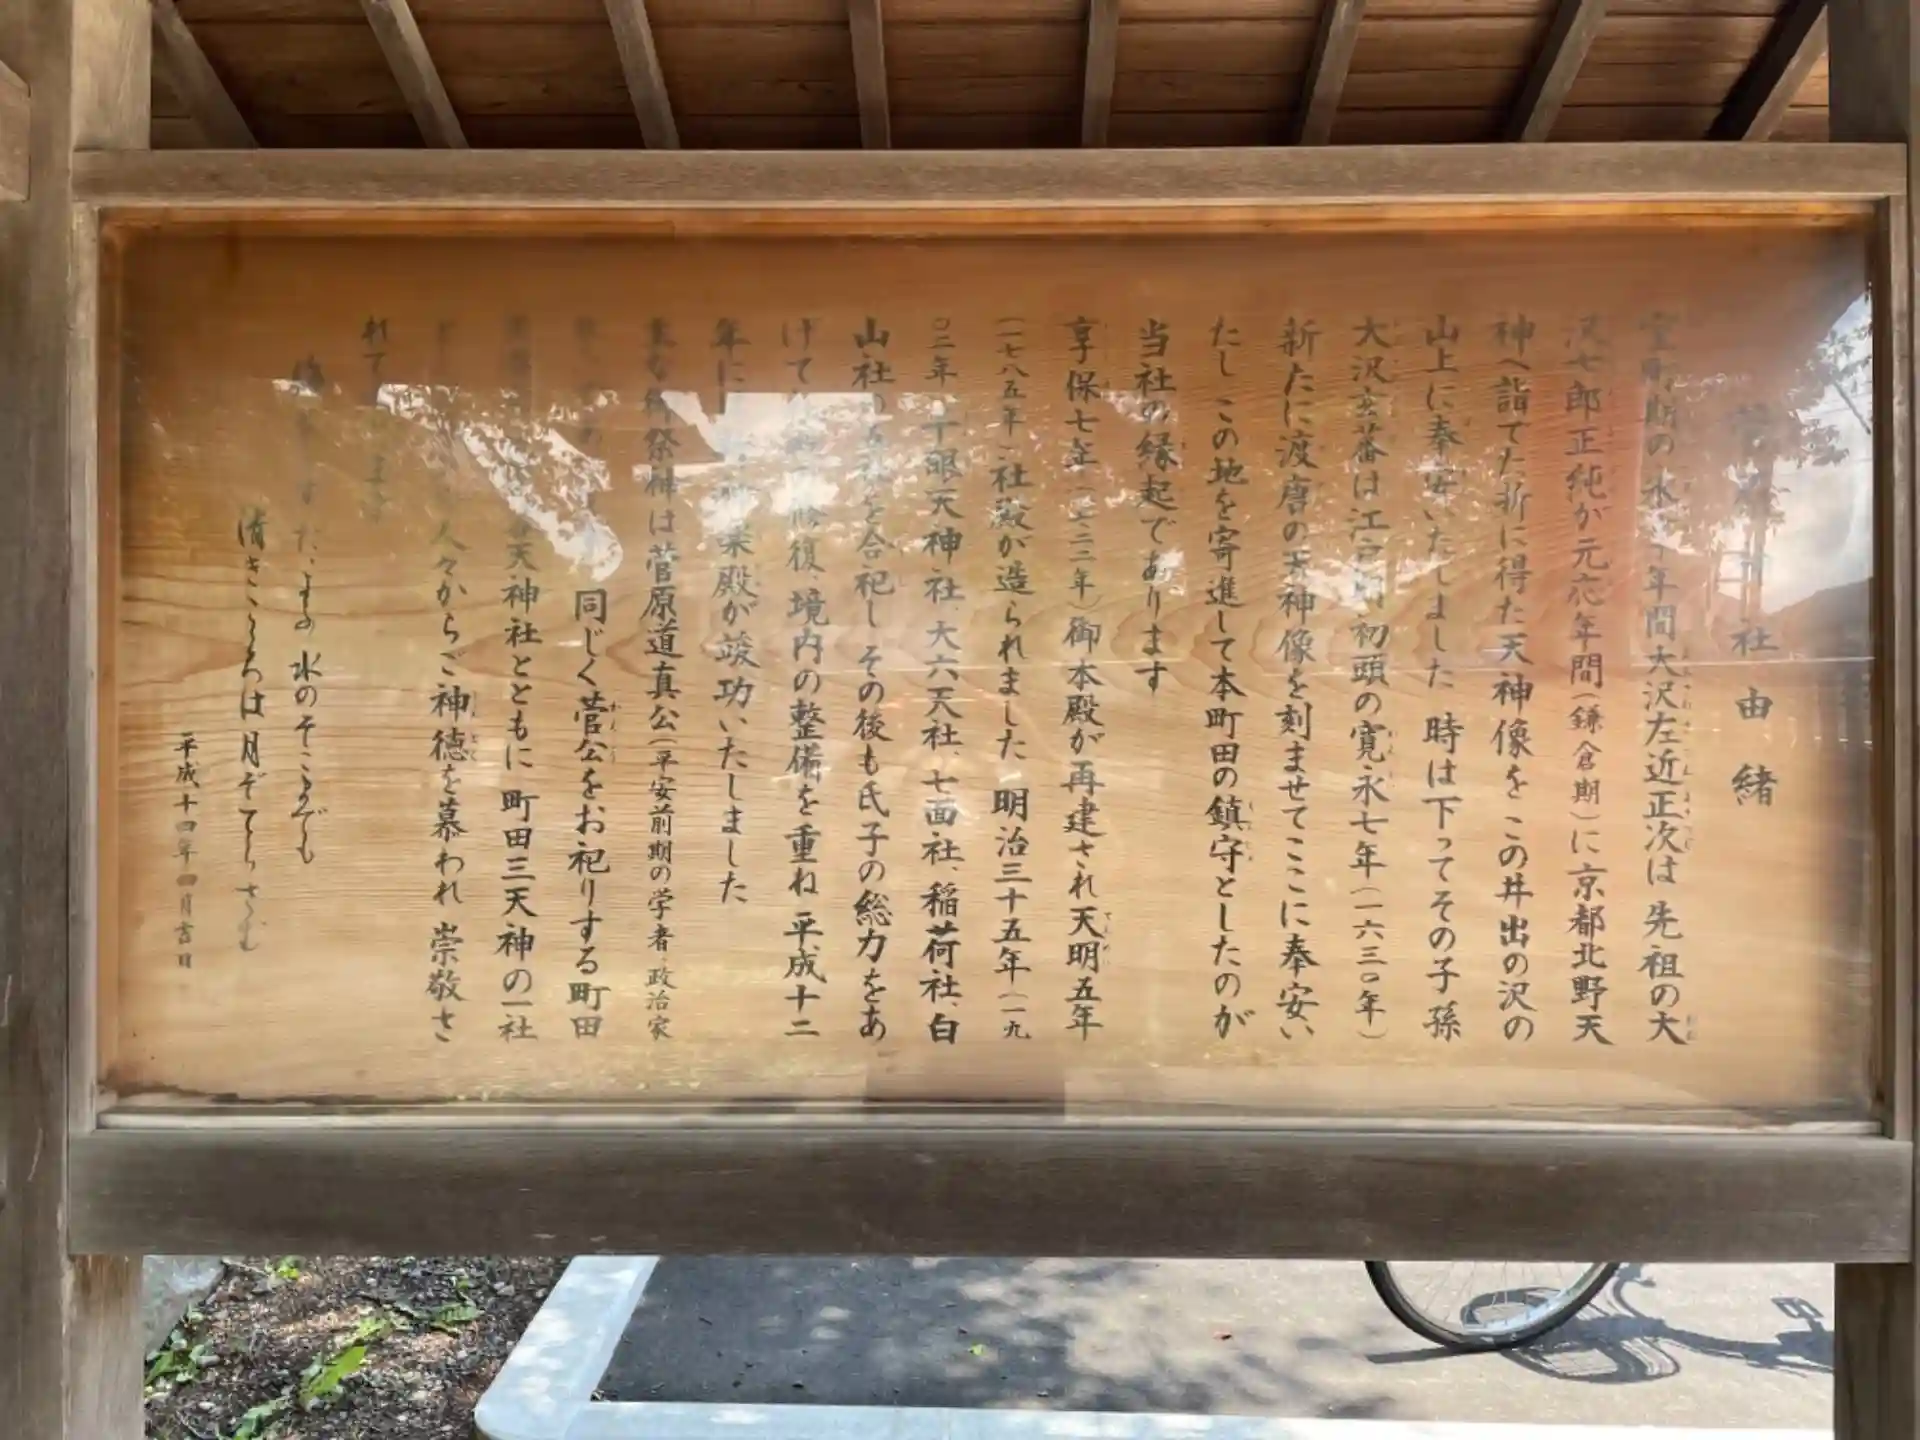 菅原神社由緒
室町期の永 年間大沢左近正次は先祖の大
沢七郎正純が元応年間(鎌倉期)に京都北野天
神へ詣でた折に得た天神像をこの井出の沢の
山上に奉安いたしました 時は下ってその子孫
大沢玄蕃は江戸期初頭の寛永七年(一六三〇年)
新たに渡唐の天神像を刻ませてここに奉安い
たし この地を寄進して本町田の鎮守としたのが
当社の縁起であります
享保七年(一七二二年)御本殿が再建され天明五年
(一七八五年)社殿が造られました 明治三十五年(一九
〇二年 十眼天神社、大六天社、七面社、稲荷社、白
山社の 社を合祀し その後も氏子の総力をあ
げて 修復、境内の整備を重ね 平成十二
年に 楽殿が竣功いたしました
主な御祭神は菅原道真公(平安前期の学者、政治家
同じく菅公をお祀りする町田
天神社とともに 町田三天神の一社
人々からご神徳を慕われ 崇敬さ
れて
水のそこまでも
清きこころは月ぞてらさむ
平成十四年四月吉日